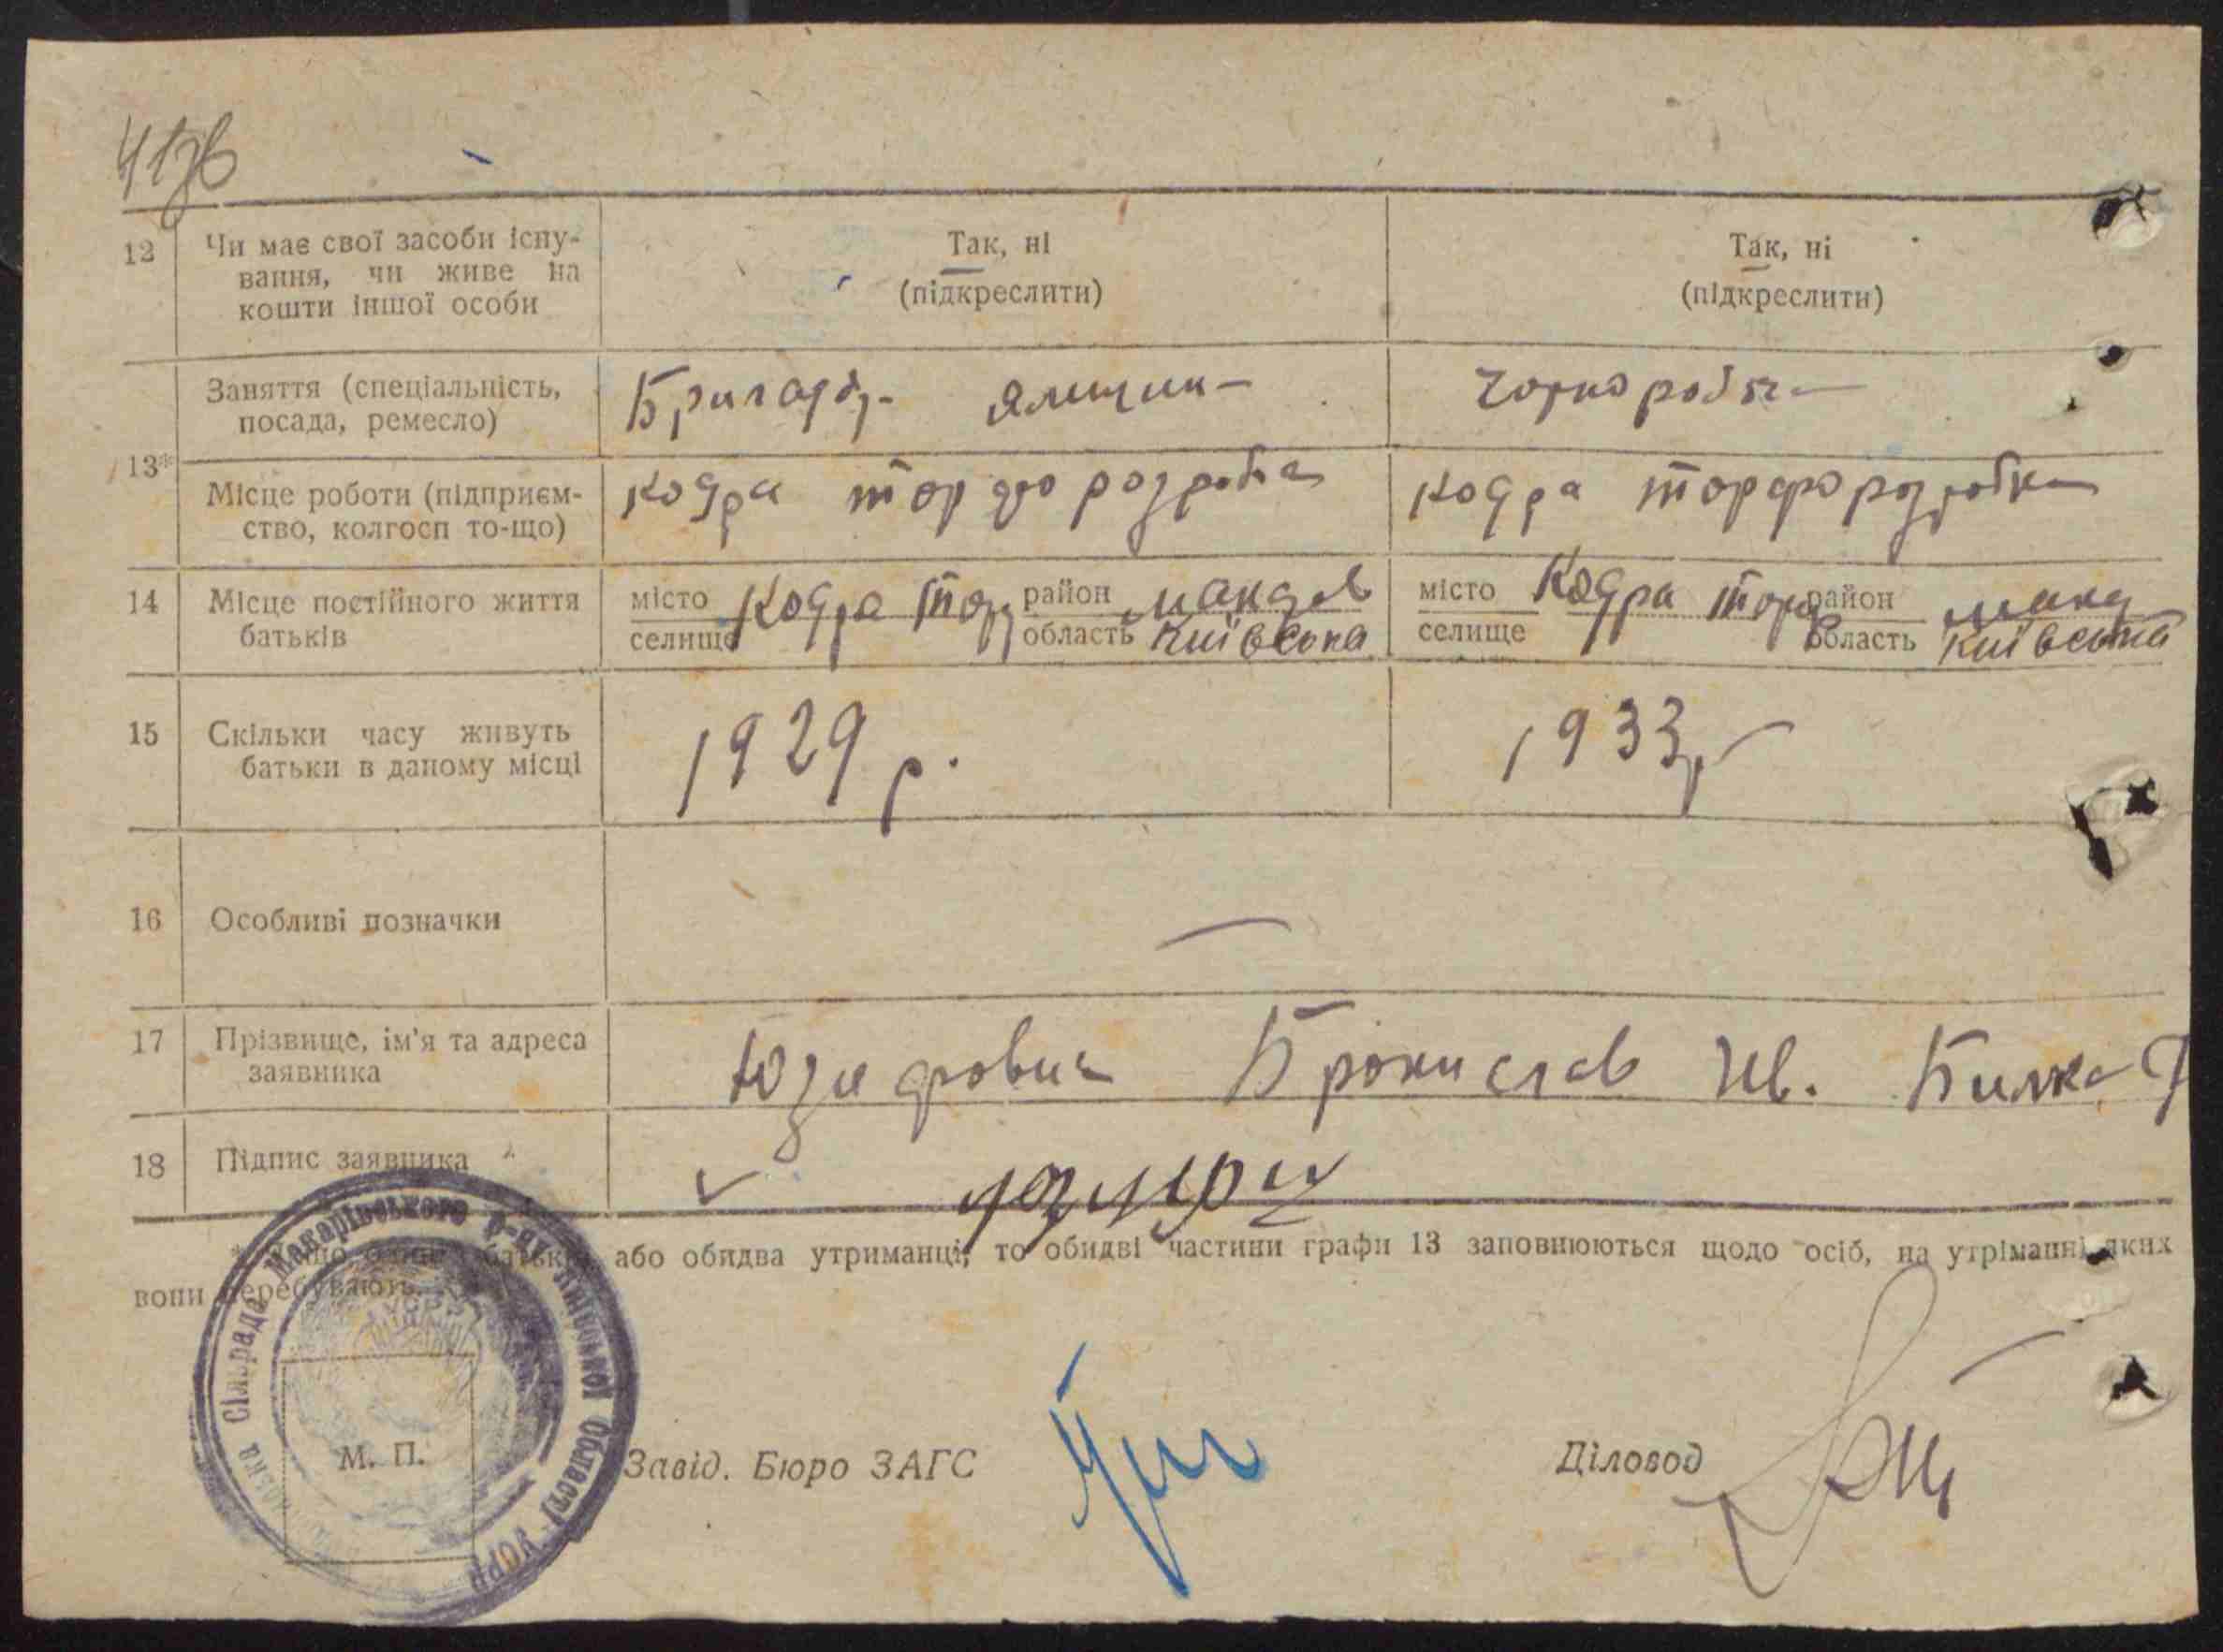 12 Чи має свої засоби існу-
вання, чи живе на
кошти іншої особи
Так, ні
(підкреслити)
Так, ні
(підкреслити)
13*
Заняття (спеціальність,
посада, ремесло)
Чорноробоч
Місце роботи (підприєм-
ство, колгосп то-що)
Кодра торфорозробка
Кодра торфорозробка
14 Місце постійного життя
батьків
місто
селище
Кодра торф
район
область
Макарів
Київська
місто
селище
Кодра торф
район
область
Макар
Київська
15 Скільки часу живуть
батьки в даному місці
1929 р.
1933 р
16 Особливі позначки
17 Прізвище, ім'я та адреса
заявника
Юзефович Броніслав Ів.
18 Підпис заявника
* Якщо один з батьків або обидва утриманці, то обидві частини графи 13 заповнюються щодо осіб, на утріманні яких
вони перебувають.
Сільрада Макарівського р-ну Київської Області УСРР
М. П.
Завід. Бюро ЗАГС
Діловод